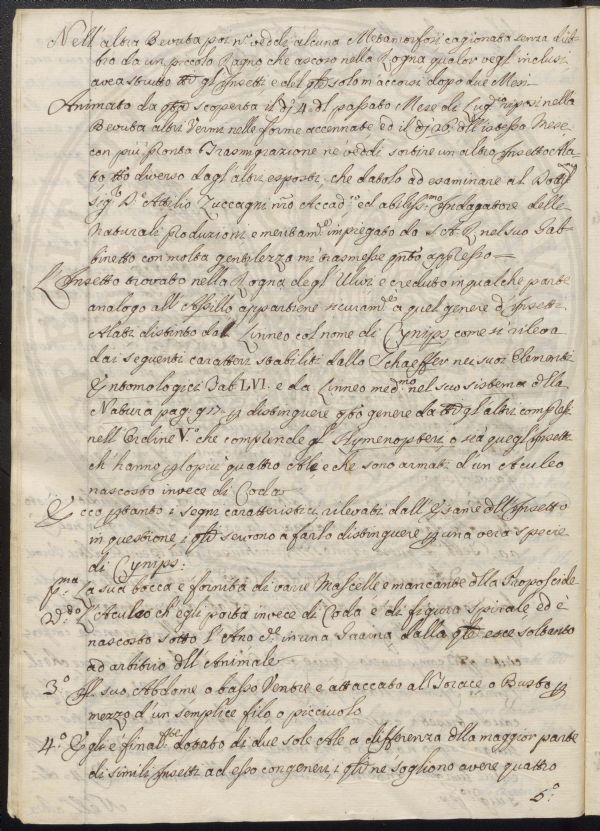 Nell'altra Bevuta poi n: veddi alcuna Metamorfosi cagionata senza dub-
bio da un piccolo Ragno che ascoso nella Rogna qualor vegl'inclusi
avea strutto tt.i gl'Insetti e del q.le solo m'accorsi dopo due Mesi
Animato da q.ta scoperta il dì 4 d'l passato Mese di Lug.o riposi nella
Bevuta altri Vermi nelle forme accennate ed il dì 26 dll'istesso Mese
con più pronta Trasmigrazione ne veddi sortire un altro Insetto Ala-
to tt.o diverso dagl'altri esposti, che datolo ad esaminare al Dott.
Sig.r D.e Attilio Zuccagni n̄ro Accad.co ed abiliss.mo Indagatore delle
Naturali Produzioni e meritam.te impiegato da S.A.R. nel suo Gab-
binetto con molta gentilezza mi trasmesse q.nto appresso =
L'Insetto trovato nella Rogna degl'Ulivi e creduto in qualche parte
analogo all'Assillo appartiene sicuram.te a quel genere d'Insetti
Alati distinto dal Linneo col nome di Cynips come si rileva
dai seguenti caratteri stabiliti dallo Schaeffer nei suoi Elementi
Entomologici Tab. LVI. e da Linneo med.mo nel suo sistema dlla
Natura pag: 917. p distinguere q.to genere da tt.i gl'altri compresi
nell'Ordine V.o che comprende gl'Hymenopteri, o sia quegl'Insetti
ch'hanno p lo più quattro Ale, e che sono armati d'un Aculeo
nascosto invece di Coda
Ecco p tanto i segni caratteristici rilevati dall'Esame dll'Insetto
in questione, i q.li servono a farlo distinguere p una vera specie
di Cynips:
P.ma La sua bocca è fornita di varie Mascelle e mancante dlla Proposcide
2.do L'Aculeo ch'egli porta invece di Coda è di figura spirale, ed è
nascosto sotto l'Ano in una Guaina dalla q.le esce soltanto
ad arbitrio dll'Animale
3.o Il suo Abdome o basso Ventre è attaccato al Torace o Busto p
mezzo d'un semplice filo o picciuolo
4.o Egli è final.te dotato di due sole Ale a differenza dlla maggior parte
di simili Insetti ad esso congeneri, i q.li ne sogliono avere quattro
5.o